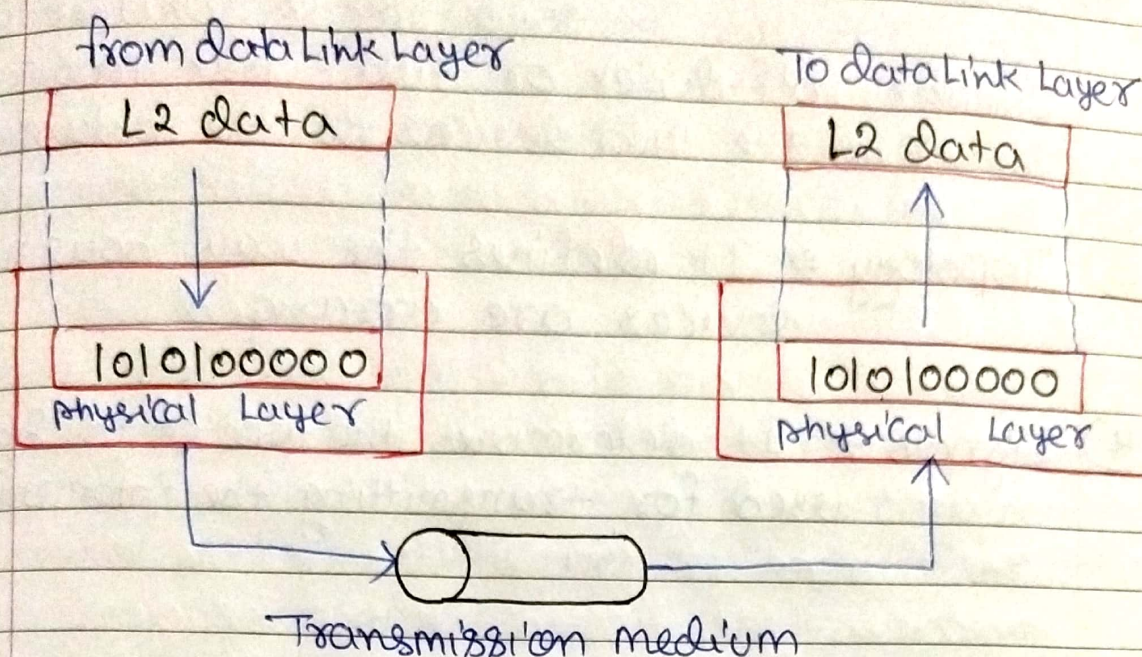 from data Link Layer
L2 data
1010100000
physical Layer
To data Link Layer
L2 data
1010100000
physical Layer
Transmission medium